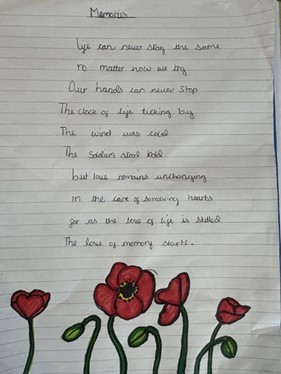 Memories
Life can never stay the same
no matter how we try
Our hands can never stop
The clock of life ticking by
The wind was cold
The soldiers stood bold
but love remains unchanging
in the care of sorrowing hearts
for as the love of life is stilled
The love of memory starts.